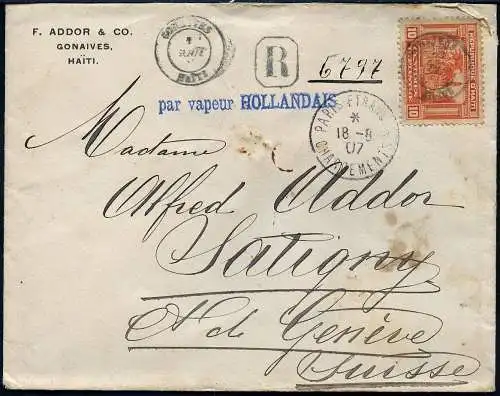 F. ADDOR & CO.
GONAIVES,
HAÏTI.
GONAIVES
HAITI
R
6797
par vapeur HOLLANDAIS
PARIS ETRANG
*
18-8
07
CHARGEMENTS
REPUBLIQUE D'HAITI
10 10
Madame
Alfred Addor
Satigny
Ct de Genève
Suisse